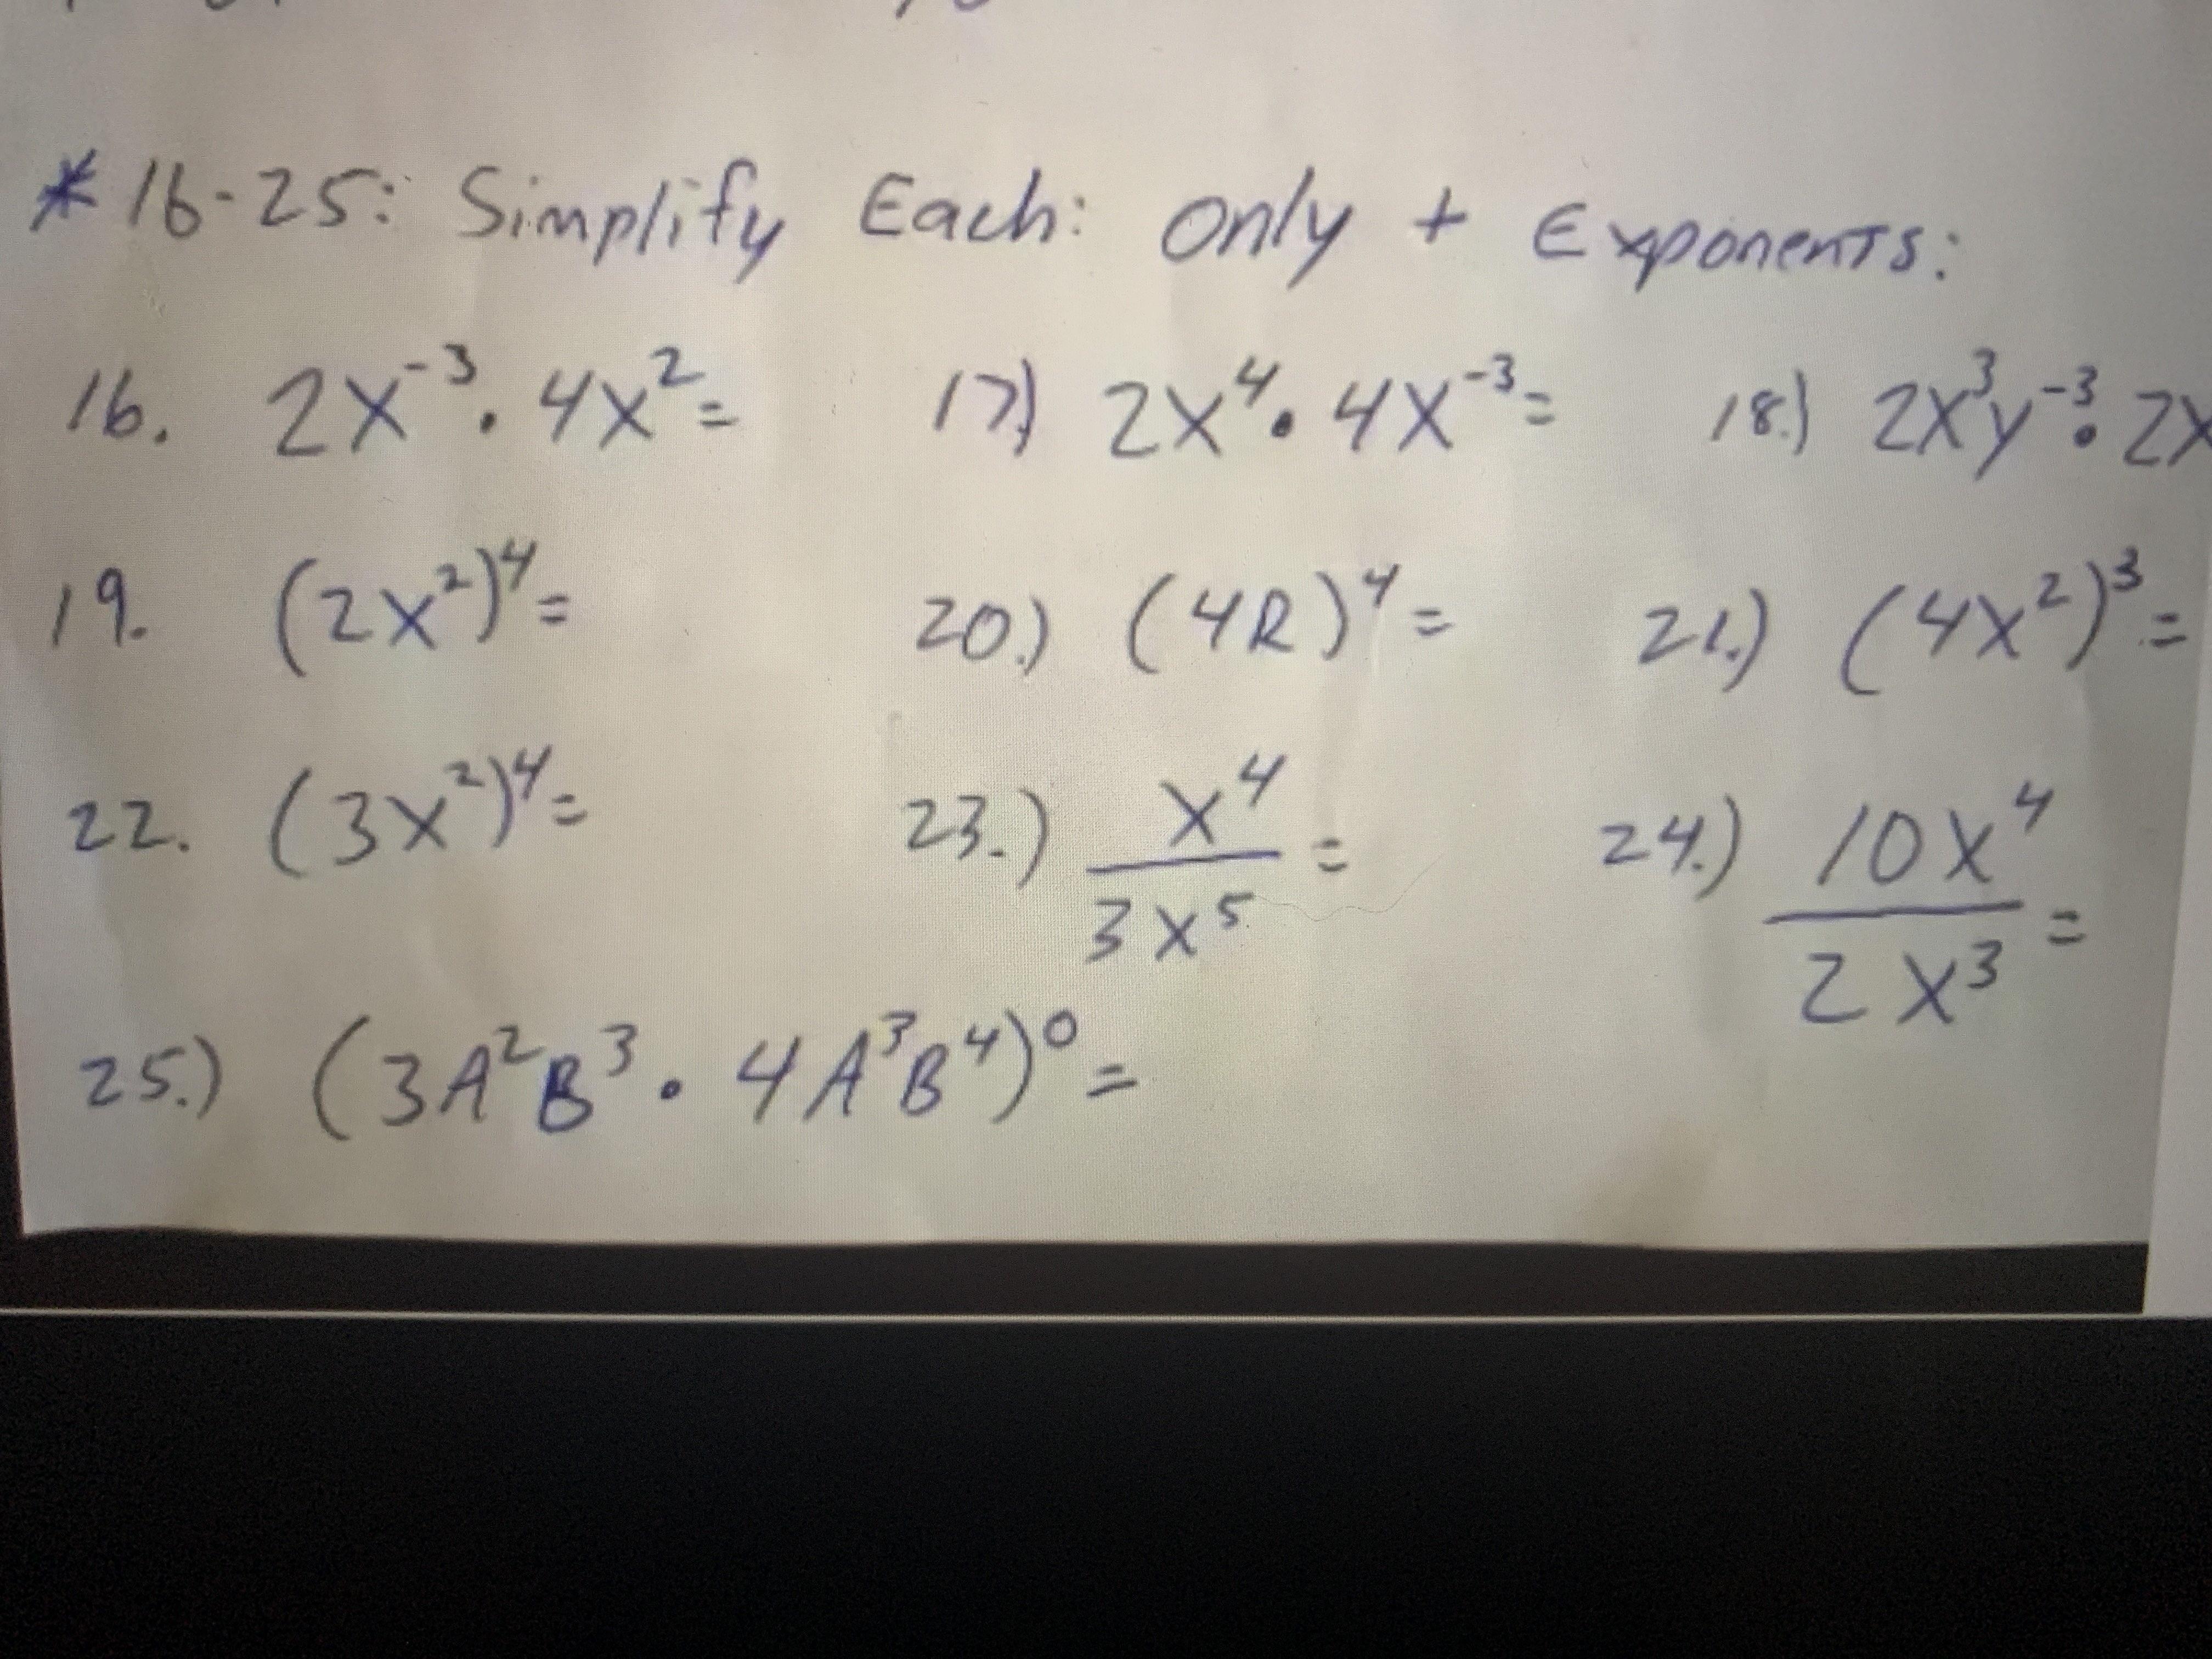 * 16-25: Simplify Each: Only + Exponents:
16. 2x⁻³ · 4x² = 17.) 2x⁴ · 4x⁻³ = 18.) 2x³y⁻³ · 2x
19. (2x²)⁴ = 20.) (4R)⁴ = 21.) (4x²)³ =
22. (3x²)⁴ = 23.) x⁴/3x⁵ = 24.) 10x⁴/2x³ =
25.) (3A²B³ · 4A³B⁴)⁰ =